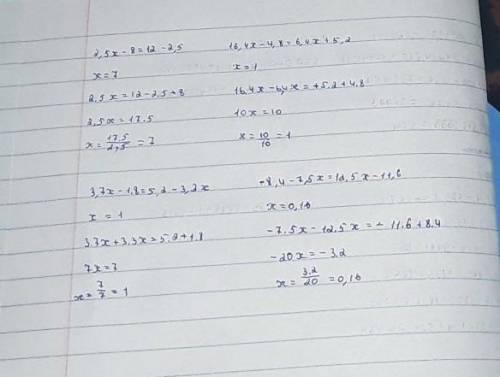 2,5x-8=12-2,5
x=7
2,5x=12-2,5+8
2,5x=17.5
x=17.5/2,5=7
16,4x-4,8=6,4x+5,2
x=1
16,4x-6,4x=+5,2+4,8
10x=10
x=10/10=1
3,7x-1,8=5,2-3,3x
x=1
3,7x+3,3x=5,2+1,8
7x=7
x=7/7=1
-8,4-7,5x=12,5x-11,6
x=0,16
-7,5x-12,5x=-11,6+8,4
-20x=-3,2
x=3,2/20=0,16